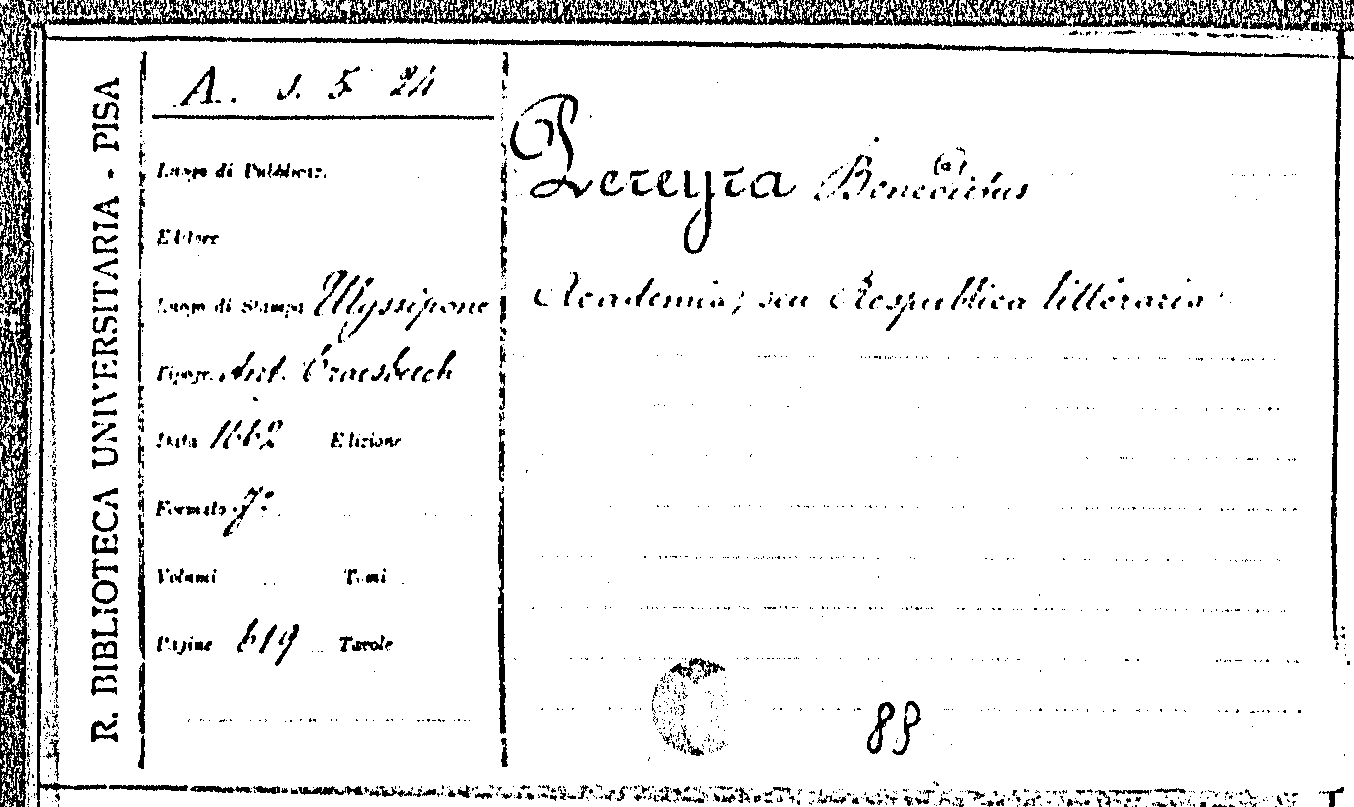 R. BIBLIOTECA UNIVERSITARIA - PISA
A. s. 5 24
Luogo di Pubblicaz.
Editore
Luogo di Stampa Ulyssipone
Tipogr. Ant. Craesbeech
Data 1662 Edizione
Formato
Volumi Tomi
Pagine 619 Tavole
Pereyra Benedictus (a)
Academia, seu Respublica litteraria
89